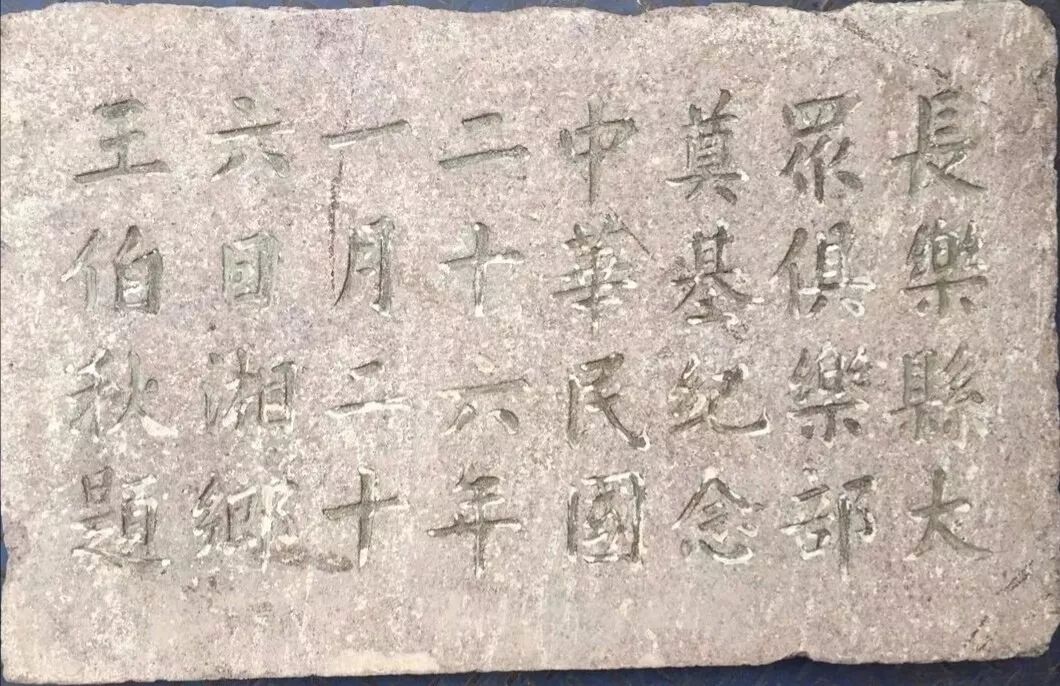 長樂縣大
眾俱樂部
奠基紀念
中華民國
二十六年
一月二十
六日湘鄉
王伯秋題